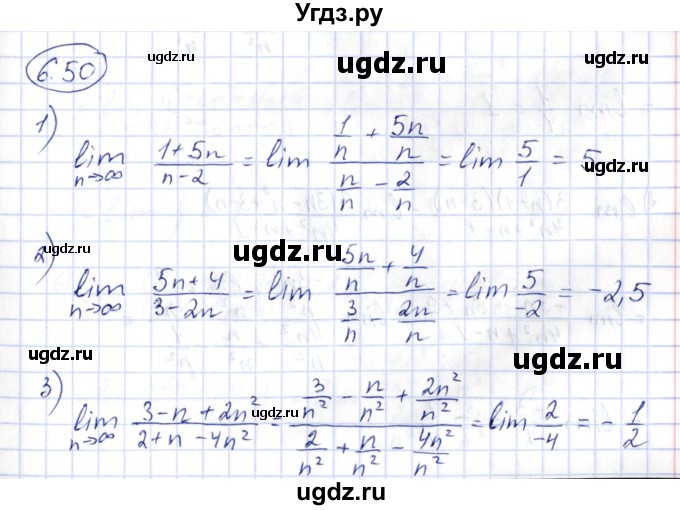 Угдз.ру
6.50
ugdz.ru ugdz.ru ugdz.ru
1)
lim n→∞ (1+5n)/(n-2) = lim (1/n + 5n/n)/(n/n - 2/n) = lim 5/1 = 5
ugdz.ru
ugdz.ru ugdz.ru ugdz.ru
2)
lim n→∞ (5n+4)/(3-2n) = lim (5n/n + 4/n)/(3/n - 2n/n) = lim 5/-2 = -2,5
ugdz.ru ugdz.ru
3)
lim n→∞ (3-n+2n²)/(2+n-4n²) = (3/n² - n/n² + 2n²/n²)/(2/n² + n/n² - 4n²/n²) = lim 2/-4 = -1/2
ugdz.ru
ugdz.ru ugdz.ru
ugdz.ru